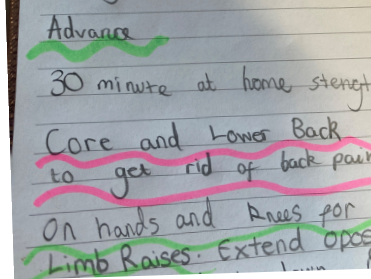 Advance
30 minute at home stengt
Core and Lower Back
to get rid of back pain
On hands and knees for
Limb Raises. Extend opos